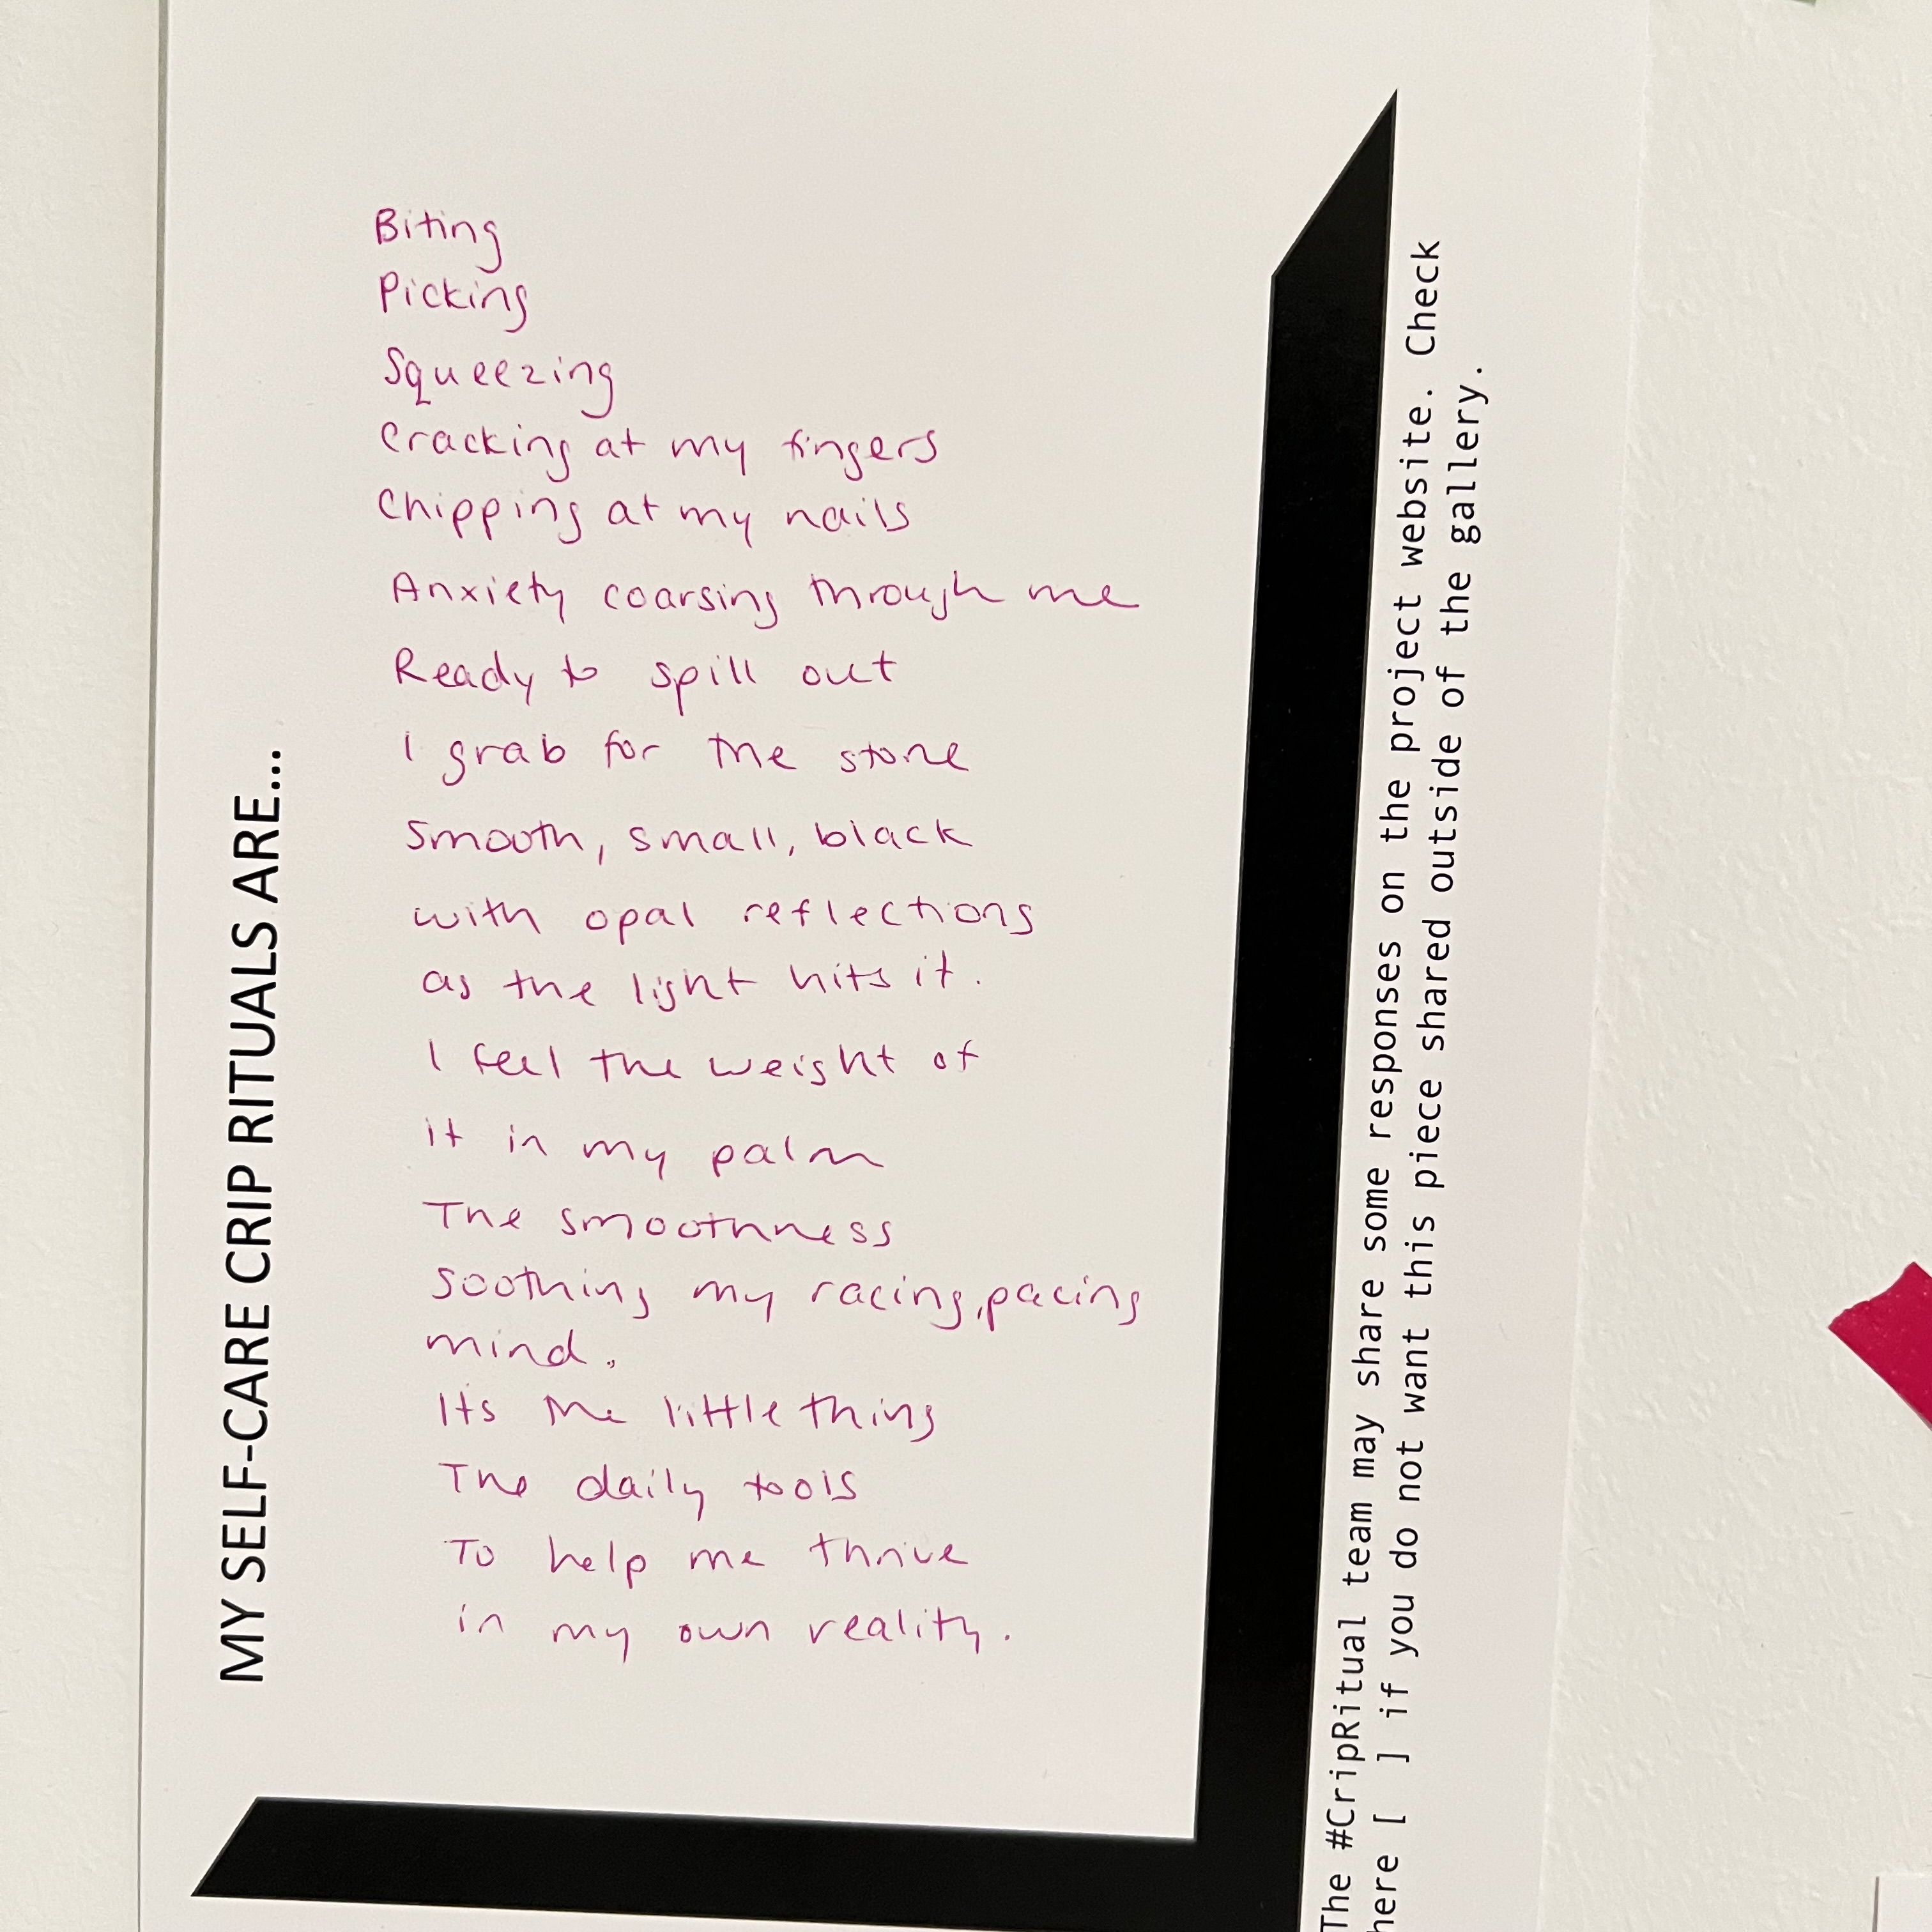 MY SELF-CARE CRIP RITUALS ARE...
Biting
Picking
Squeezing
Cracking at my fingers
Chipping at my nails
Anxiety coarsing through me
Ready to spill out
I grab for the stone
Smooth, small, black
with opal reflections
as the light hits it.
I feel the weight of
it in my palm
The smoothness
soothing my racing, pacing
mind.
Its the little thing
The daily tools
To help me thrive
in my own reality.
The #CripRitual team may share some responses on the project website. Check
here [ ] if you do not want this piece shared outside of the gallery.